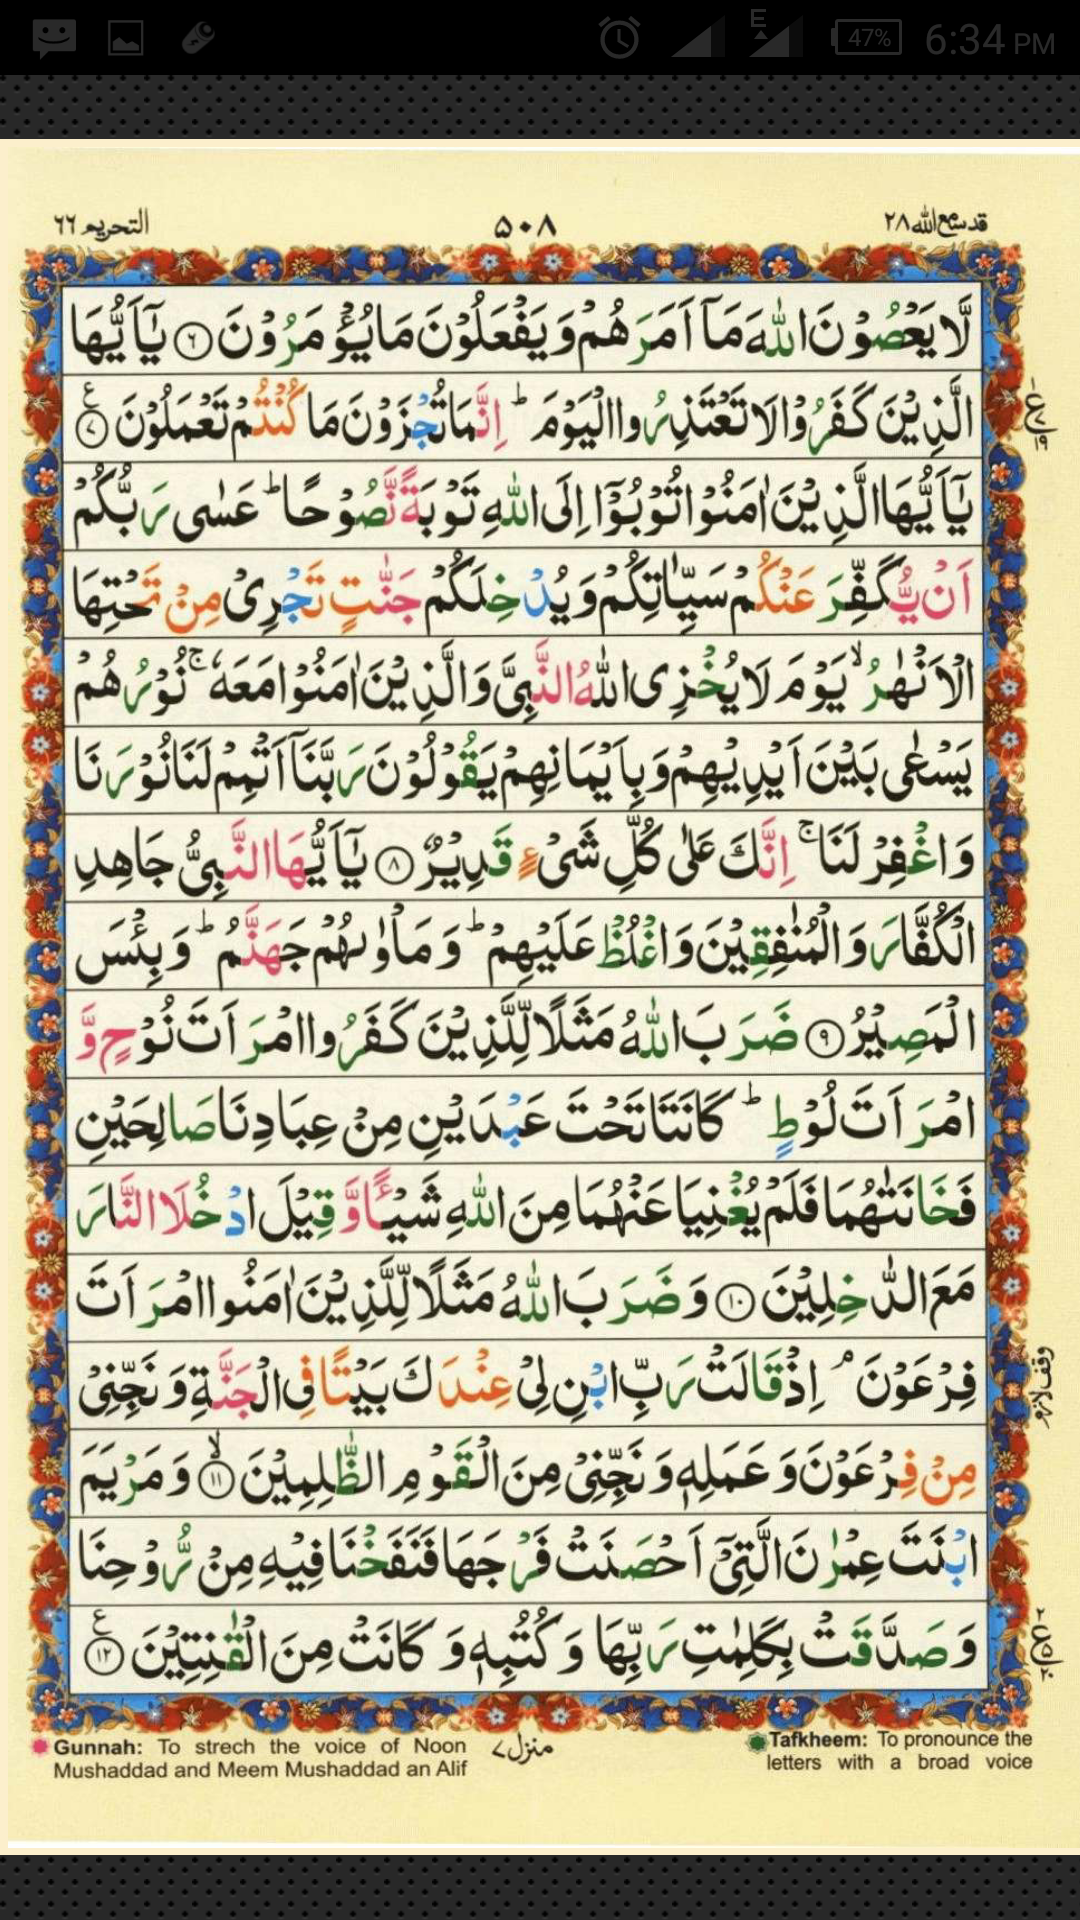 47% 6:34 PM
التحريم ٦٦ ۵۰۸ قد سمع الله ٢٨
لَّا يَعْصُوْنَ اللّٰهَ مَآ اَمَرَهُمْ وَيَفْعَلُوْنَ مَا يُؤْمَرُوْنَ ۝۶ يٰٓاَيُّهَا
الَّذِيْنَ كَفَرُوْا لَا تَعْتَذِرُوا الْيَوْمَ ؕ اِنَّمَا تُجْزَوْنَ مَا كُنْتُمْ تَعْمَلُوْنَ ۝۷ ع
يٰٓاَيُّهَا الَّذِيْنَ اٰمَنُوْا تُوْبُوْٓا اِلَى اللّٰهِ تَوْبَةً نَّصُوْحًا ؕ عَسٰى رَبُّكُمْ
اَنْ يُّكَفِّرَ عَنْكُمْ سَيِّاٰتِكُمْ وَيُدْخِلَكُمْ جَنّٰتٍ تَجْرِيْ مِنْ تَحْتِهَا
الْاَنْهٰرُ ۙ يَوْمَ لَا يُخْزِى اللّٰهُ النَّبِيَّ وَالَّذِيْنَ اٰمَنُوْا مَعَهٗ ۚ نُوْرُهُمْ
يَسْعٰى بَيْنَ اَيْدِيْهِمْ وَبِاَيْمَانِهِمْ يَقُوْلُوْنَ رَبَّنَآ اَتْمِمْ لَنَا نُوْرَنَا
وَاغْفِرْ لَنَا ۚ اِنَّكَ عَلٰى كُلِّ شَيْءٍ قَدِيْرٌ ۝۸ يٰٓاَيُّهَا النَّبِيُّ جَاهِدِ
الْكُفَّارَ وَالْمُنٰفِقِيْنَ وَاغْلُظْ عَلَيْهِمْ ؕ وَمَاْوٰىهُمْ جَهَنَّمُ ؕ وَبِئْسَ
الْمَصِيْرُ ۝۹ ضَرَبَ اللّٰهُ مَثَلًا لِّلَّذِيْنَ كَفَرُوا امْرَاَتَ نُوْحٍ وَّ
امْرَاَتَ لُوْطٍ ؕ كَانَتَا تَحْتَ عَبْدَيْنِ مِنْ عِبَادِنَا صَالِحَيْنِ
فَخَانَتٰهُمَا فَلَمْ يُغْنِيَا عَنْهُمَا مِنَ اللّٰهِ شَيْـًٔا وَّقِيْلَ ادْخُلَا النَّارَ
مَعَ الدّٰخِلِيْنَ ۝۱۰ وَضَرَبَ اللّٰهُ مَثَلًا لِّلَّذِيْنَ اٰمَنُوا امْرَاَتَ
فِرْعَوْنَ ۘ اِذْ قَالَتْ رَبِّ ابْنِ لِيْ عِنْدَكَ بَيْتًا فِى الْجَنَّةِ وَنَجِّنِيْ
وقف لازم
مِنْ فِرْعَوْنَ وَعَمَلِهٖ وَنَجِّنِيْ مِنَ الْقَوْمِ الظّٰلِمِيْنَ ۝۱۱ ۙ وَمَرْيَمَ
ابْنَتَ عِمْرٰنَ الَّتِيْٓ اَحْصَنَتْ فَرْجَهَا فَنَفَخْنَا فِيْهِ مِنْ رُّوْحِنَا
وَصَدَّقَتْ بِكَلِمٰتِ رَبِّهَا وَكُتُبِهٖ وَكَانَتْ مِنَ الْقٰنِتِيْنَ ۝۱۲ ع
Gunnah: To strech the voice of Noon
Mushaddad and Meem Mushaddad an Alif
منزل ٧
Tafkheem: To pronounce the
letters with a broad voice